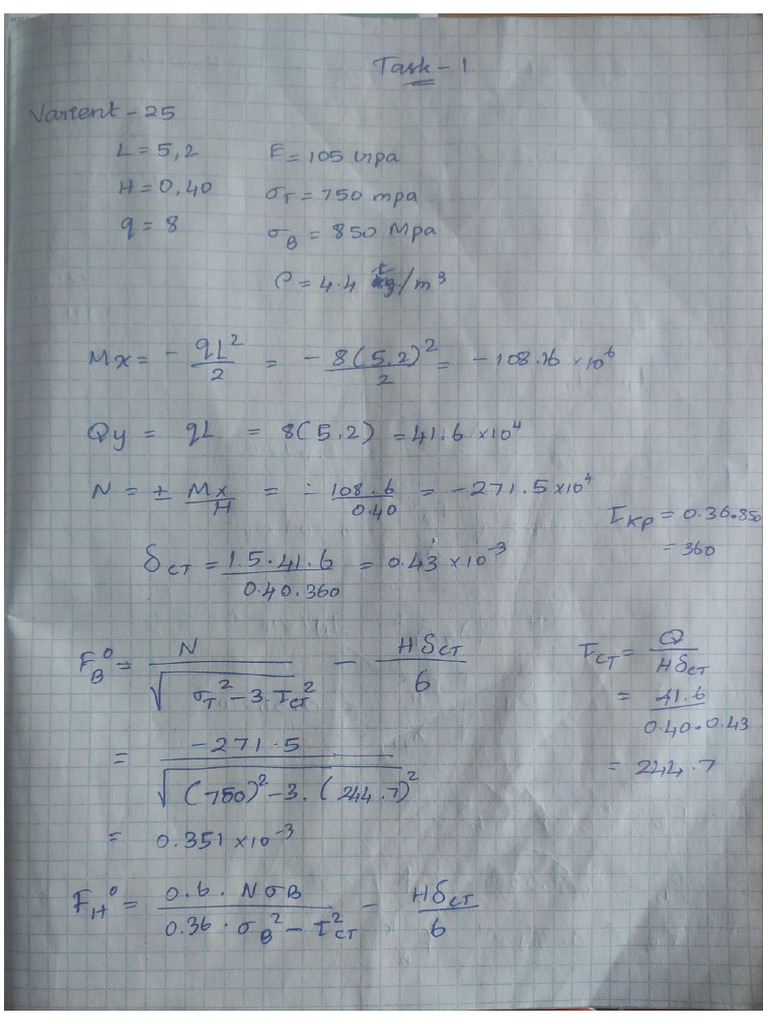 Task - 1
Varient - 25
L = 5,2 E = 105 Gpa
H = 0,40 σT = 750 mpa
q = 8 σB = 850 Mpa
ρ = 4.4 t/m³
Mx = - qL²/2 = - 8(5.2)²/2 = - 108.16 × 10⁶
Qy = qL = 8(5.2) = 41.6 × 10⁴
N = ± Mx/H = - 108.6/0.40 = - 271.5 × 10⁴
τкр = 0.36 · 850
= 360
δст = 1.5 · 41.6/0.40 · 360 = 0.43 × 10⁻³
FB⁰ = N/√(σT² - 3 · τст²) - Hδст/6
τст = Q/Hδст
= 41.6/0.40 · 0.43
= 244.7
= -271.5/√((750)² - 3 · (244.7)²)
= 0.351 × 10⁻³
FH⁰ = 0.6 · NσB/0.36 · σB² - τст² - Hδст/6